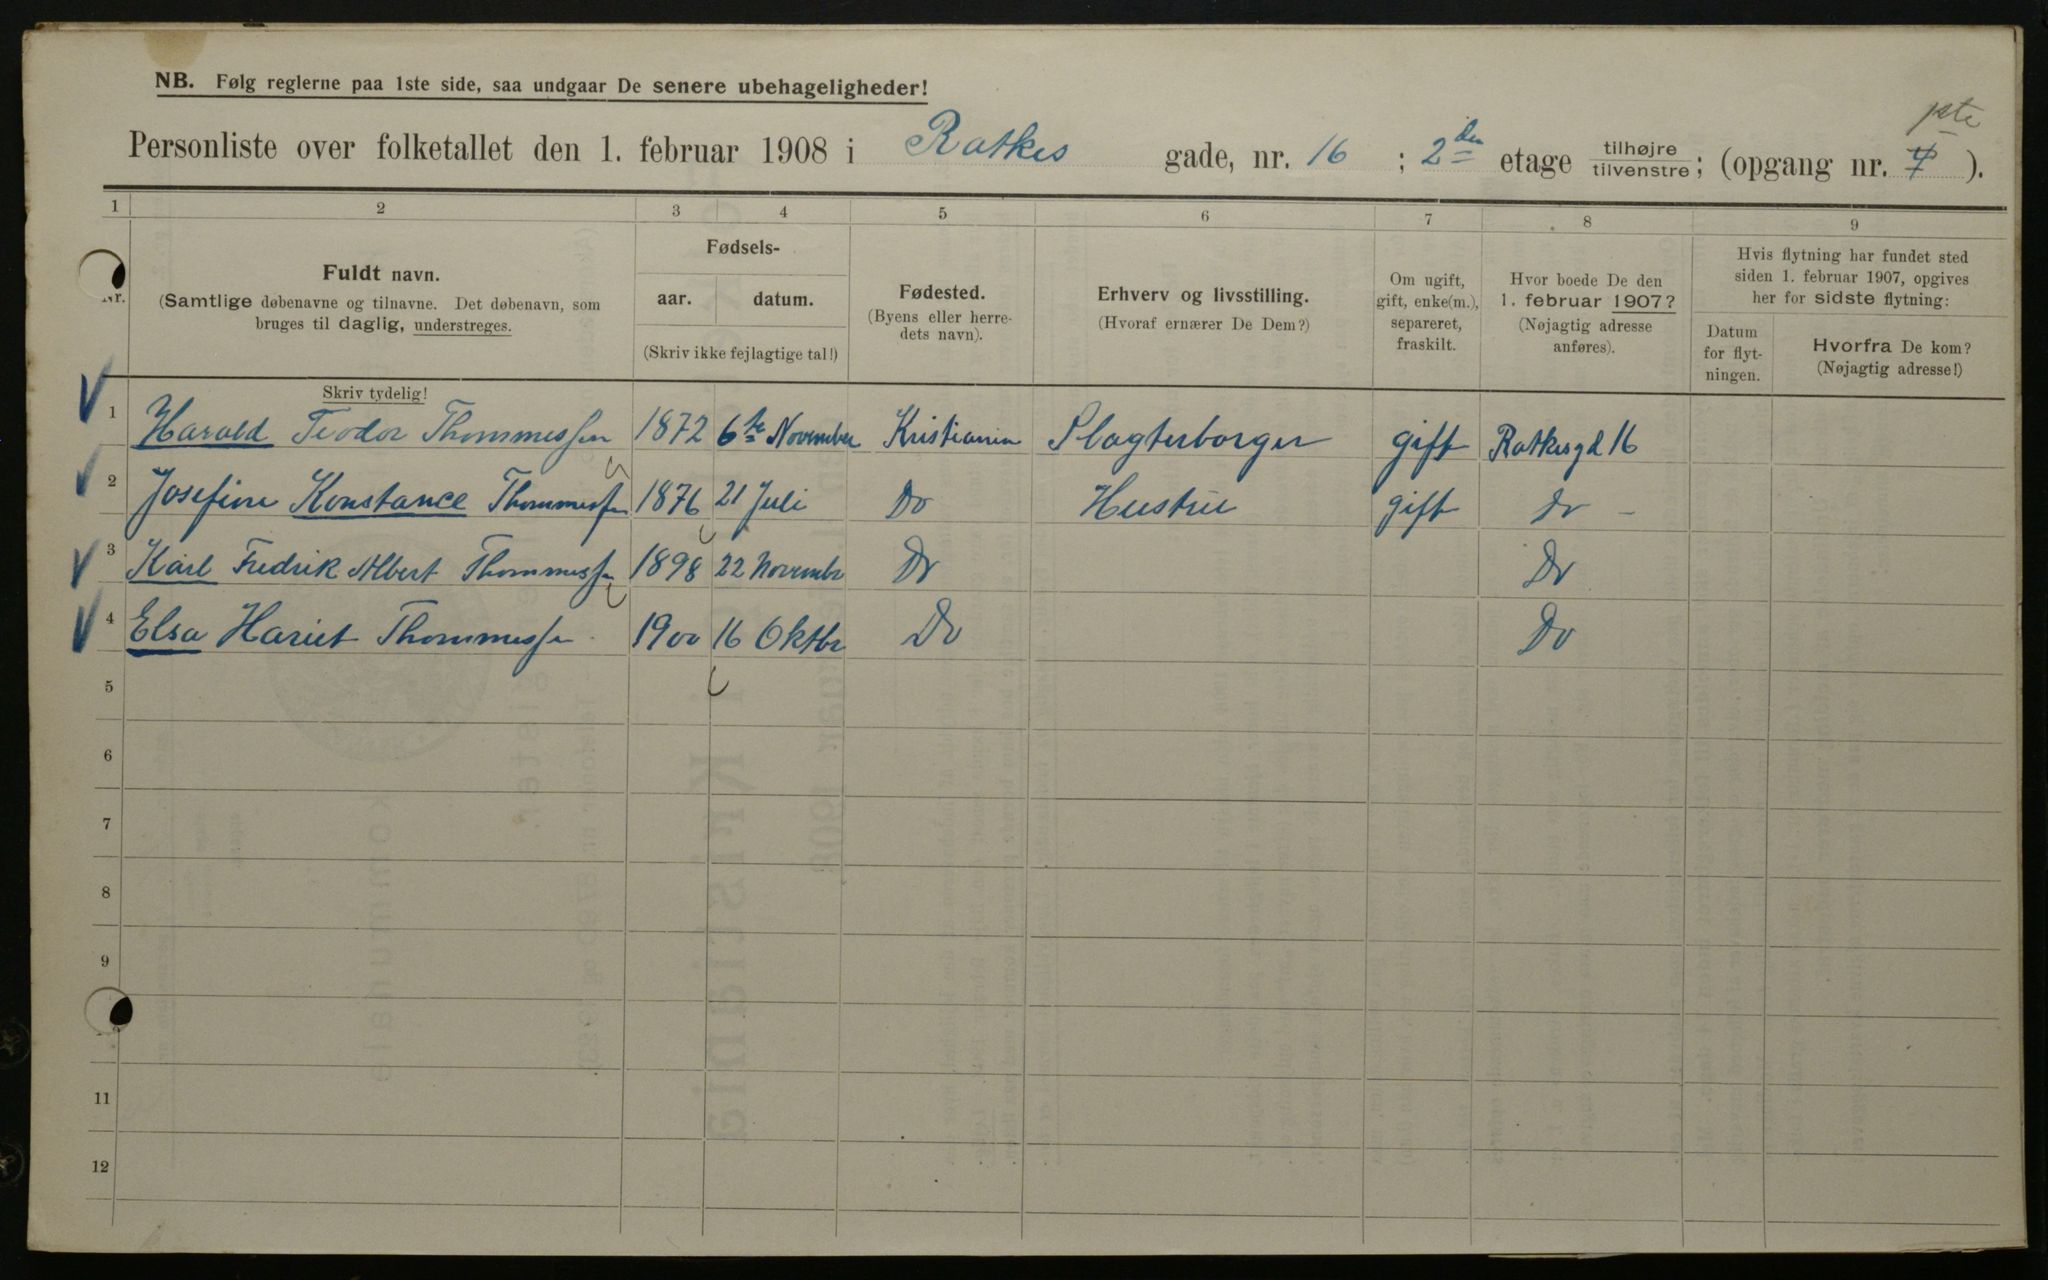 NB. Følg reglerne paa 1ste side, saa undgaar De senere ubehageligheder!
Personliste over folketallet den 1. februar 1908 i Ratkes gade, nr. 16 ; 2den etage tilhøjre / tilvenstre; (opgang nr. ).
1 2 3 4 5 6 7 8 9
Nr.
Fuldt navn.
(Samtlige døbenavne og tilnavne. Det døbenavn, som
bruges til daglig, understreges.
Skriv tydelig!
Fødsels-
aar. datum.
(Skriv ikke fejlagtige tal!)
Fødested.
(Byens eller herre-
dets navn).
Erhverv og livsstilling.
(Hvoraf ernærer De Dem?)
Om ugift,
gift, enke(m.),
separeret,
fraskilt.
Hvor boede De den
1. februar 1907?
(Nøjagtig adresse
anføres).
Hvis flytning har fundet sted
siden 1. februar 1907, opgives
her for sidste flytning:
Datum
for flyt-
ningen.
Hvorfra De kom?
(Nøjagtig adresse!)
1 Harald Teodor Thommessen 1872 6te November Kristiania Slagterborger gift Ratkesgd 16
2 Josefine Konstance Thommessen 1876 21 Juli Do Hustru gift do -
3 Karl Fredrik Albert Thommessen 1898 22 Novembr Do Do
4 Elsa Hariet Thommessen 1900 16 Oktbr Do Do
5
6
7
8
9
11
12